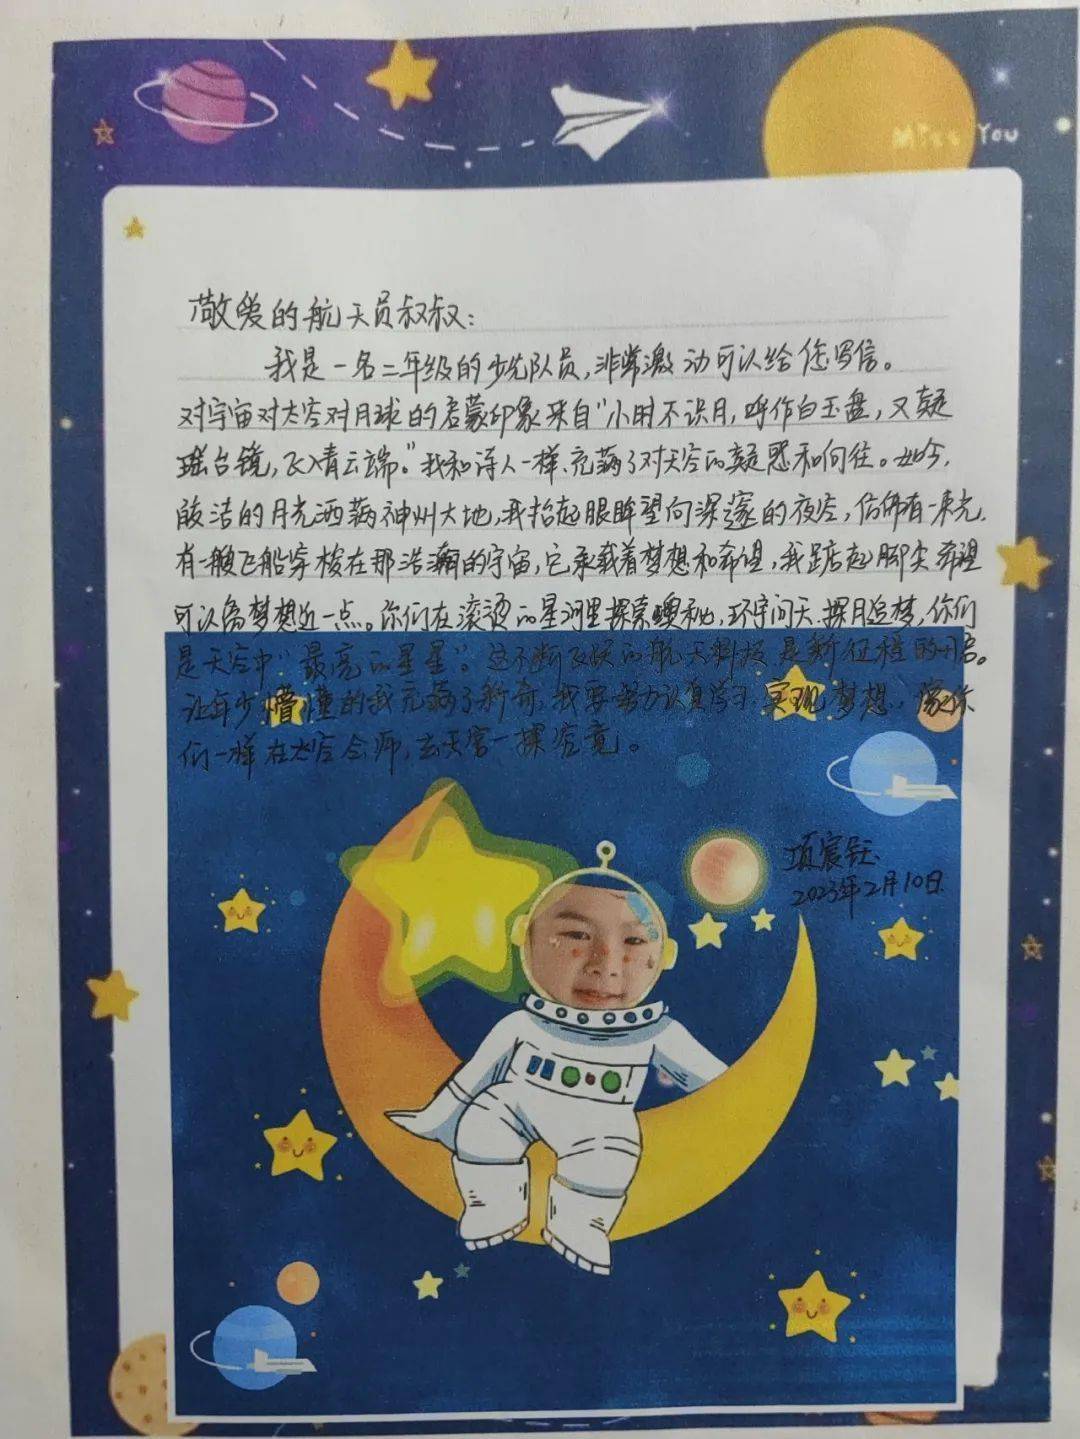 Miss You
敬爱的航天员叔叔：
我是一名二年级的少先队员，非常激动可以给您写信。
对宇宙对太空对月球的启蒙印象来自“小时不识月，呼作白玉盘，又疑
瑶台镜，飞入青云端。”我和诗人一样，充满了对太空的疑惑和向往。如今，
皎洁的月光洒满神州大地，我抬起眼眸望向深邃的夜空，仿佛有一束光，
有一艘飞船穿梭在那浩瀚的宇宙，它承载着梦想和希望，我踮起脚尖希望
可以离梦想近一点。你们在滚烫的星河里探索奥秘，环宇问天，探月追梦，你们
是天空中“最亮的星星”。这不断飞跃的航天科技是新征程的开启。
让年少懵懂的我充满了新奇，我要努力认真学习，实现梦想，像你
们一样在太空会师，去天宫一探究竟。
项宸钰
2023年2月10日